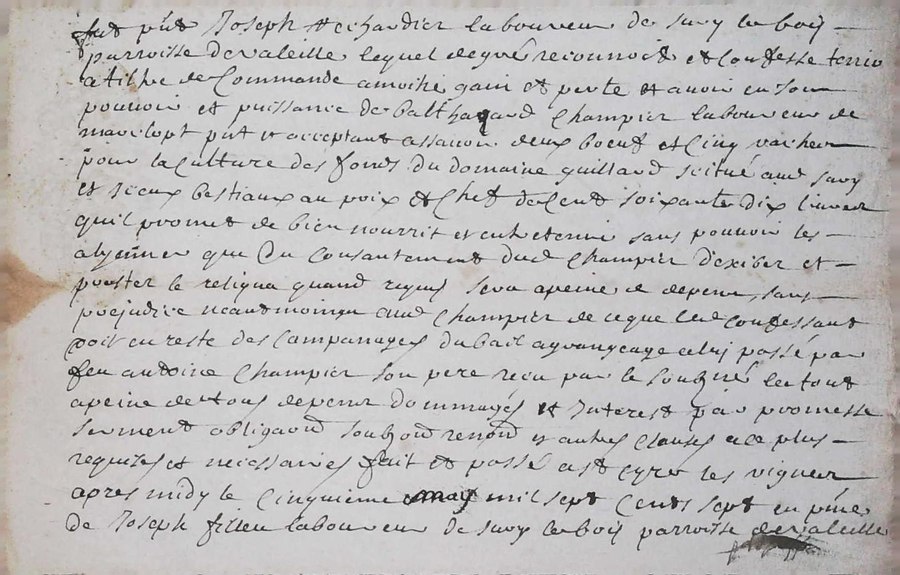 fut p̃nt Joseph Hechardier laboureur de Suvy le bois
parroisse de valeille lequel de gré reconnoit et Confesse tenir
a tiltre de Commande a moitié gain et perte et avoir en Son
pouvoir et puissance de Balthazard Champier laboureur de
p̃nt et acceptant assavoir deux boeuf et Cinq vaches
pour la Culture des fonds du domaine guillard scitué aud Suvy
et Iceux bestiaux au poix et Chef de Cent soixante dix livres
quil promet de bien nourrir et entretenir sans pouvoir les
alyenner que du Consantement dud Champier d'exiber et
prester le reliqua quand requis sera apeine de depens, sans
prejudice neantmoings aud Champier de ceque led Confessant
doit en reste des Campanages du bail celui passé par
feu antoine Champier son pere receu par le Soubzné le tout
apeine de tous depens dommages et Interest par promesse
serment obligaõn soubzõn renonõn et autres Clauses a ce plus
requises et necessaires fait et passé a st Cyr les vignes
apres midy le Cinquieme may mil sept Cents sept en p̃nce
de Joseph filleu laboureur de Suvy le bois parroisse de valeille